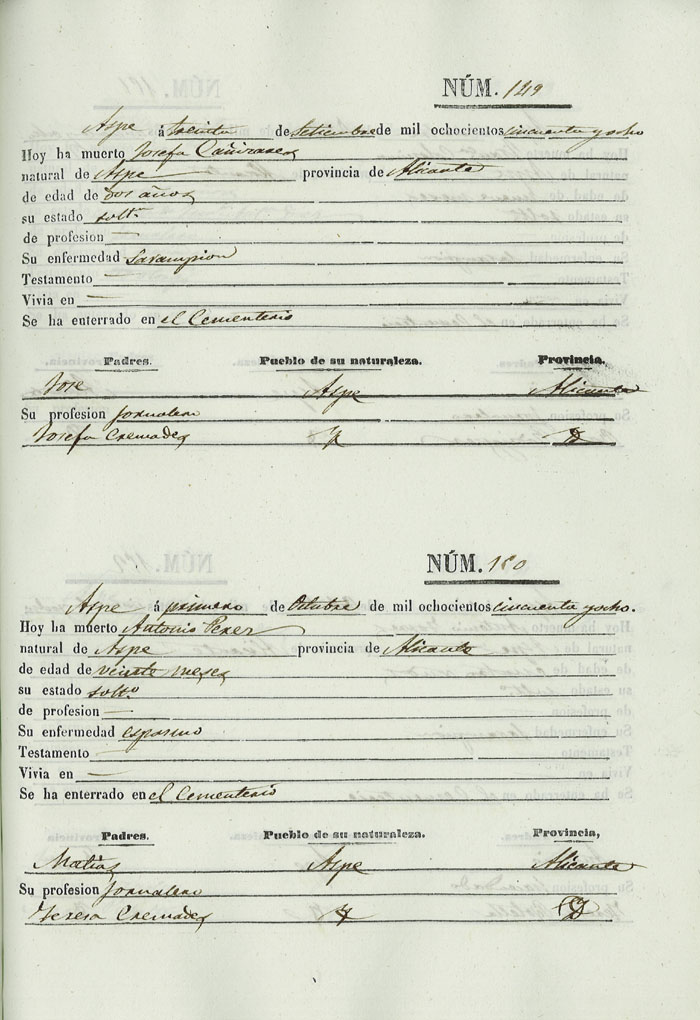 NÚM. 149
Aspe á treinta de Setiembre de mil ochocientos cincuenta y ocho
Hoy ha muerto Josefa Cañizares
natural de Aspe provincia de Alicante
de edad de dos años
su estado soltª
de profesion —
Su enfermedad Sarampion
Testamento —
Vivia en —
Se ha enterrado en el Cementerio
Padres. Pueblo de su naturaleza. Provincia.
Jose Aspe Alicante
Su profesion Jornalero
Josefa Cremades
NÚM. 150
Aspe á primero de Octubre de mil ochocientos cincuenta y ocho.
Hoy ha muerto Antonio Perez
natural de Aspe provincia de Alicante
de edad de veinte meses
su estado soltº
de profesion —
Su enfermedad espasmo
Testamento —
Vivia en —
Se ha enterrado en el Cementerio
Padres. Pueblo de su naturaleza. Provincia,
Matias Aspe Alicante
Su profesion Jornalero
Teresa Cremades